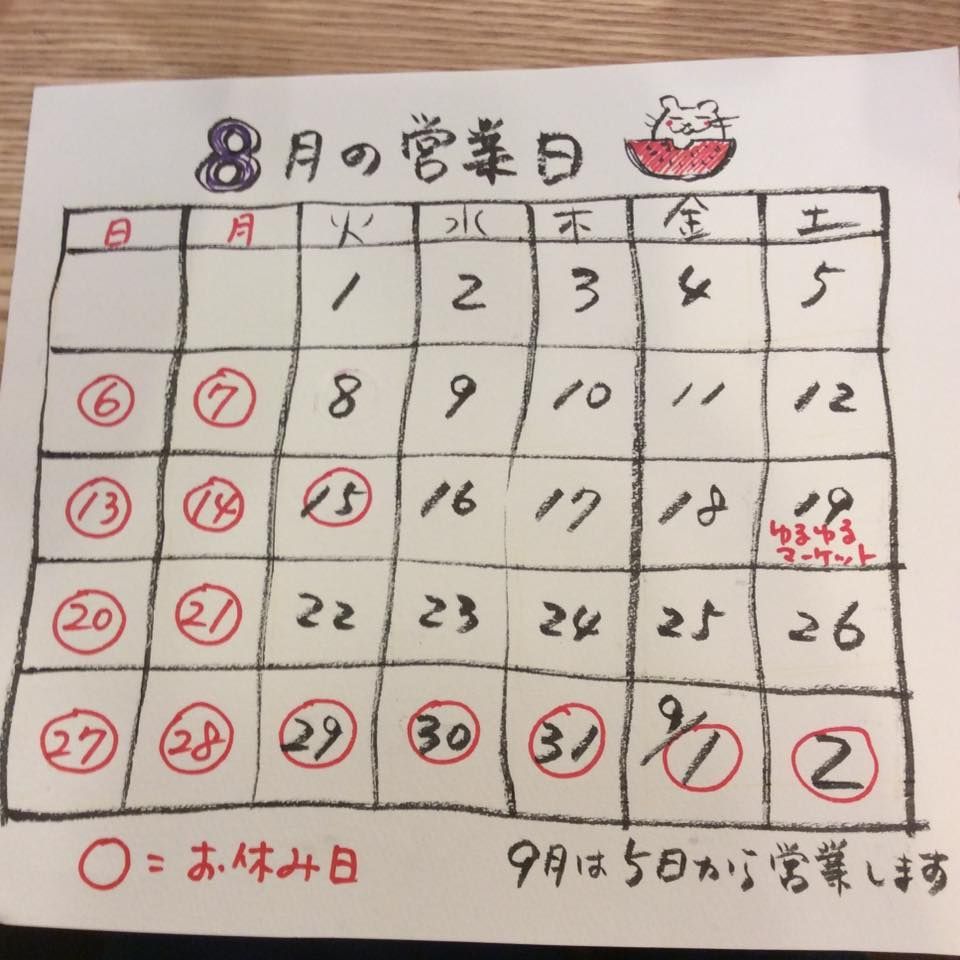 8月の営業日
日 月 火 水 木 金 土
1 2 3 4 5
6 7 8 9 10 11 12
13 14 15 16 17 18 19
ゆるゆる
マーケット
20 21 22 23 24 25 26
27 28 29 30 31 9/1 2
○=お休み日
9月は5日から営業します